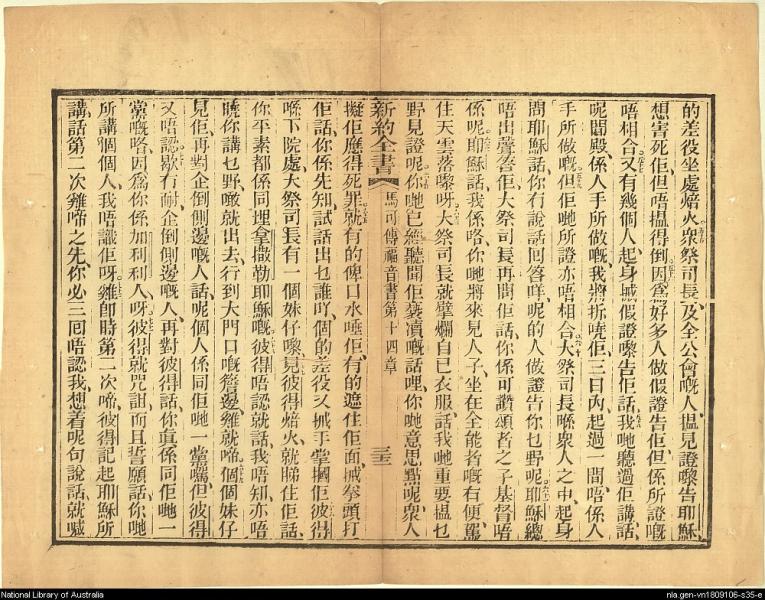 的差役坐處焙火、衆祭司長、及全公會嘅人、搵見證嚟告耶穌、
想害死佢、但唔搵得倒、因爲好多人做假證告佢、但係所證嘅
唔相合、又有幾個人起身、假證嚟告佢話、我哋聽過佢講話、
呢間殿、係人手所做嘅、我將拆嘵佢、三日內起過一間、唔係人
手所做嘅、但佢哋所證亦唔相合、大祭司長喺衆人之中、起身
問耶穌話、你冇說話回答咩、呢的人做證告你乜野呢、耶穌總
唔出聲答佢、大祭司長再問佢話、你係可讚頌者之子基督唔
係呢、耶穌話、我係咯、你哋將來見人子、坐在全能者嘅右便、駕
住天雲落嚟呀、大祭司長就擘爛自己衣服話、我哋重要搵乜
野見證呢、你哋已經聽聞佢褻瀆嘅話哩、你哋意思點呢、衆人
新約全書
馬可傳福音書第十四章
三十三
擬佢應得死罪、就有的俾口水唾佢、有的遮住佢面、拳頭打
佢話、你係先知、試話出乜誰吖、個的差役又手掌摑佢、彼得
喺下院處、大祭司長有一個妹仔嚟、見彼得焙火、就睇住佢話、
你平素都係同埋拿撒勒耶穌嘅、彼得唔認、就話、我唔知、亦唔
曉你講乜野、噉就出去、行到大門口嘅簷邊、雞就啼、個個妹仔
見佢、再對企倒側邊嘅人話、呢個人係同佢哋一黨嘅、但彼得
又唔認、歇冇耐、企倒側邊嘅人、再對彼得話、你真係同佢哋一
黨嘅咯、因爲你係加利利人呀、彼得就咒詛、而且誓願話、你哋
所講個個人、我唔識佢呀、雞即時第二次啼、彼得記起耶穌所
講話、第二次雞啼之先、你必三回唔認我、想着呢句說話、就
National Library of Australia
nla.gen-vn1809106-s35-e